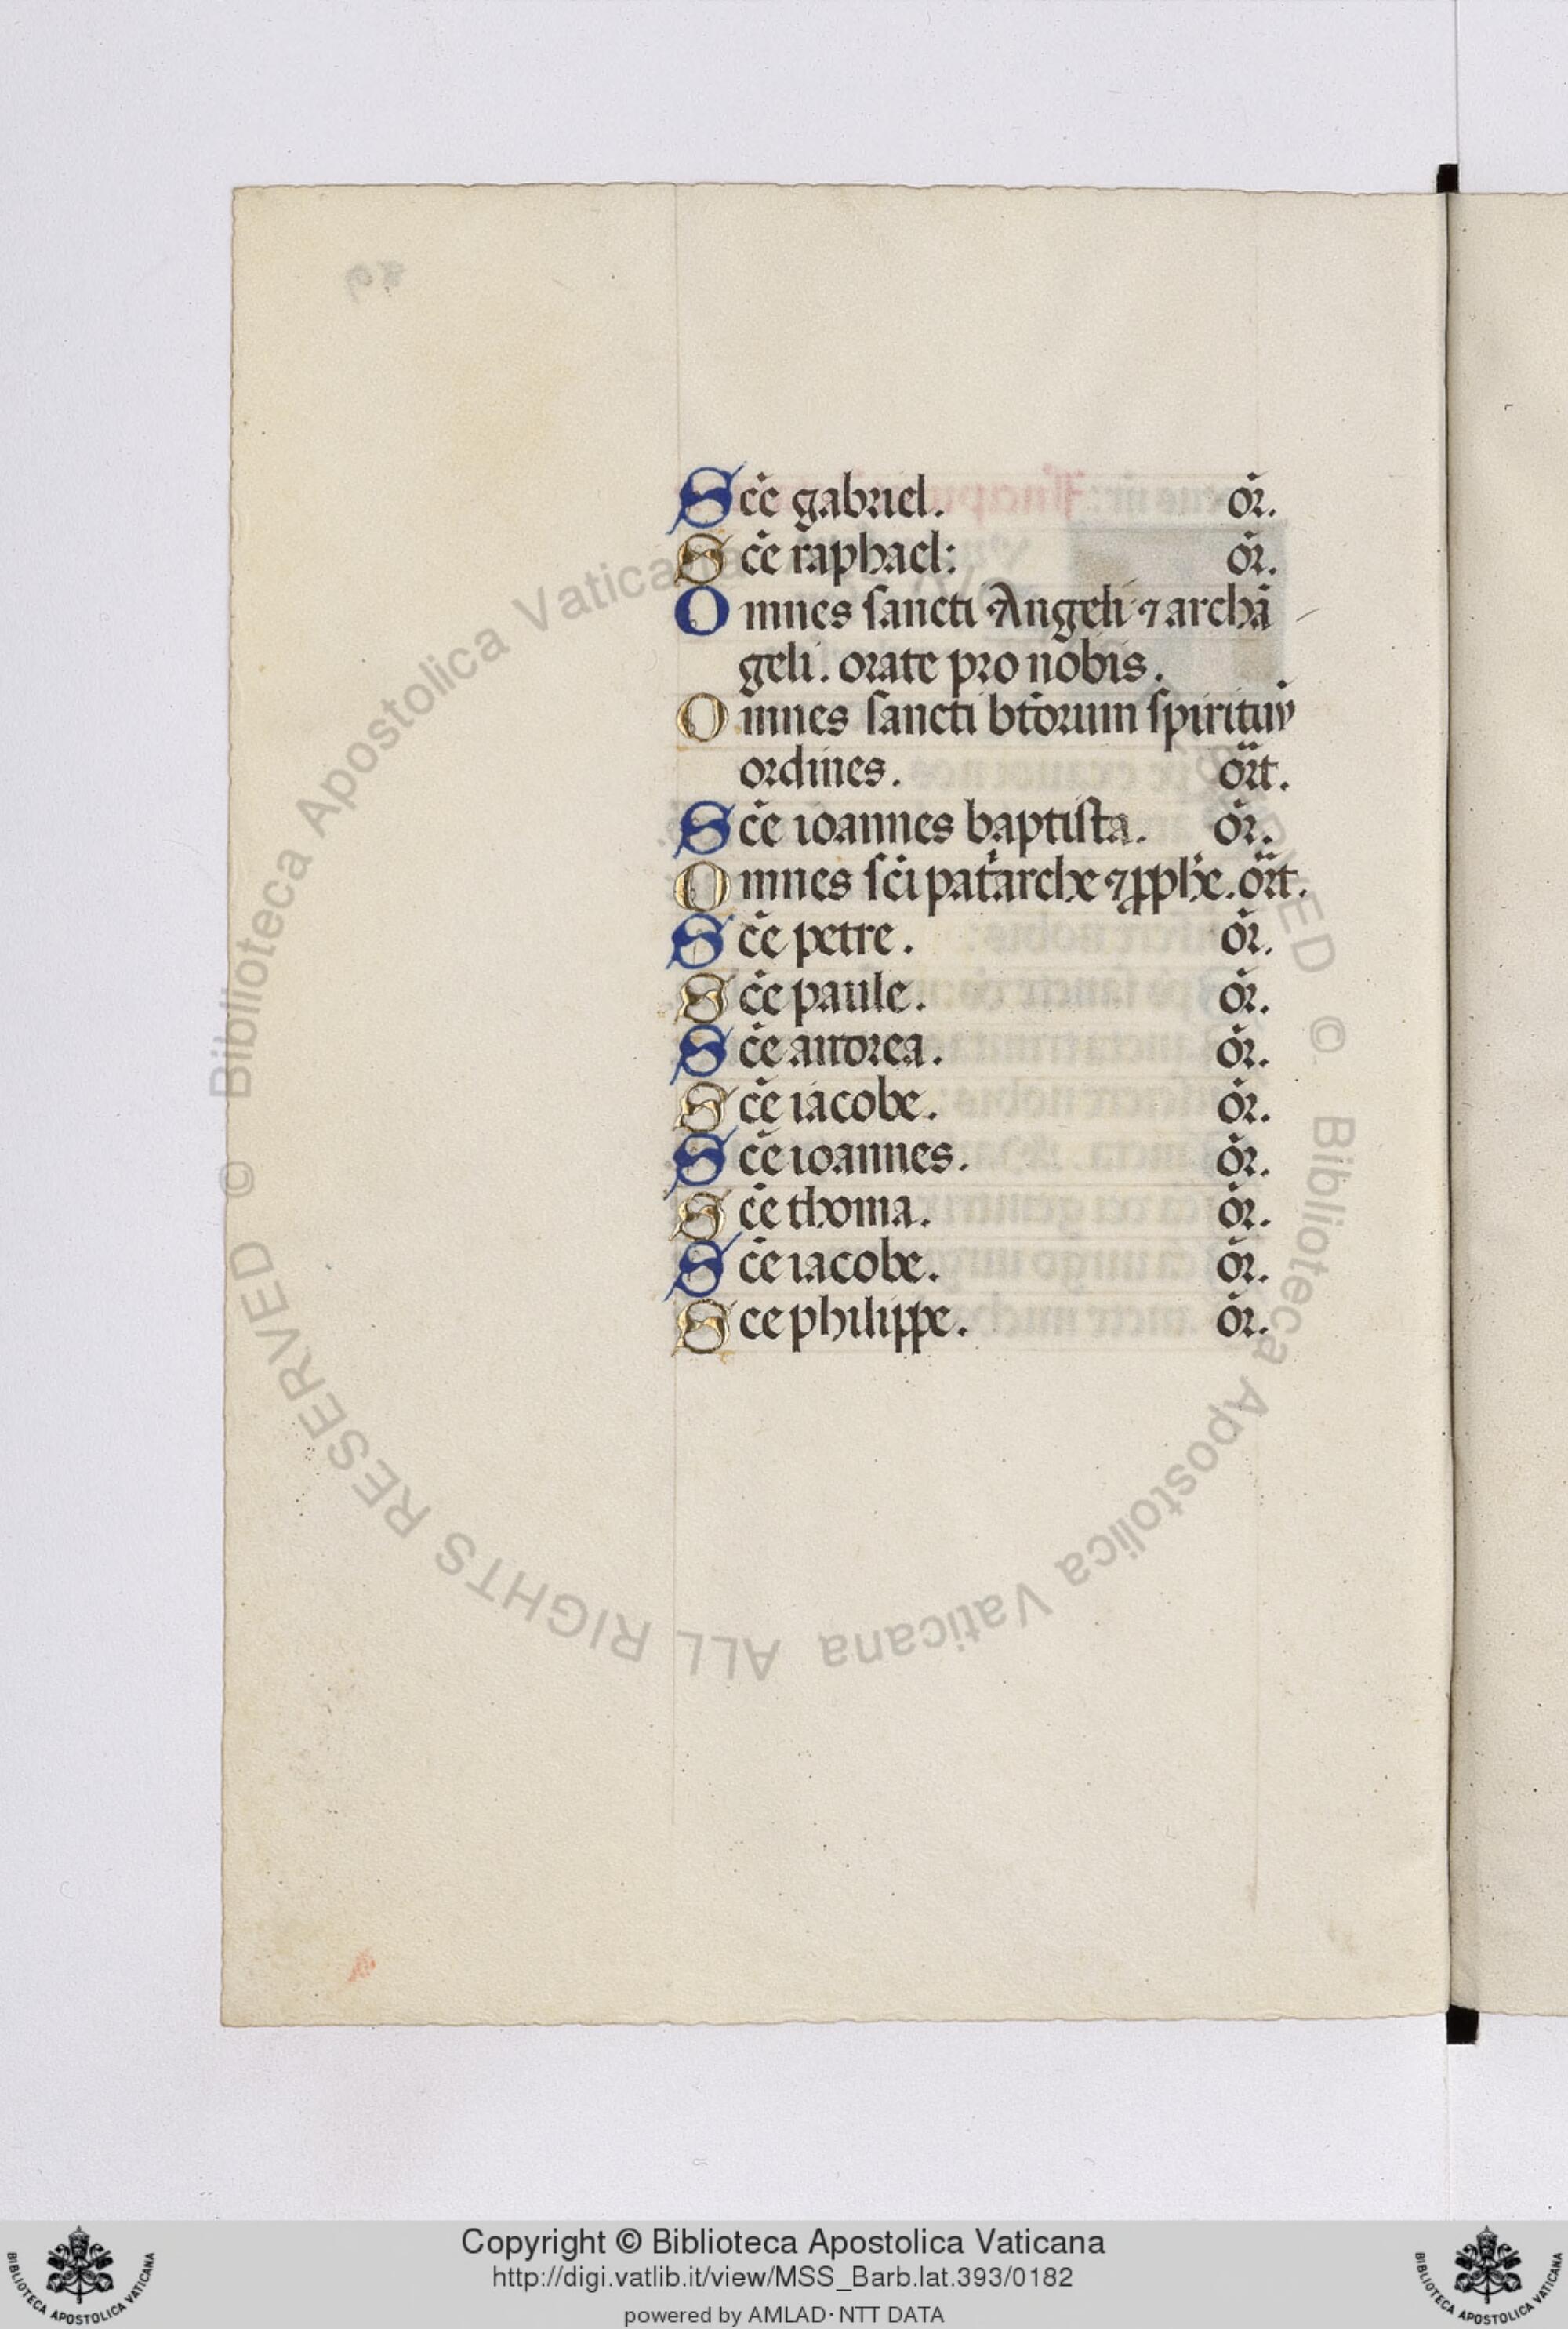 Sc̃e gabriel. or̃.
Sc̃e raphael: or̃.
Omnes sancti Angeli ⁊ archã
geli. orate pro nobis.
Omnes sancti bt̃orum spirituũ
ordines. or̃t.
Sc̃e ioannes baptista. or̃.
Omnes sc̃i patⁱarche ⁊ ꝓphe. or̃t.
Sc̃e petre. or̃.
Sc̃e paule. or̃.
Sc̃e andrea. or̃.
Sc̃e iacobe. or̃.
Sc̃e ioannes. or̃.
Sc̃e thoma. or̃.
Sc̃e iacobe. or̃.
Sce philippe. or̃.
© Biblioteca Apostolica Vaticana ALL RIGHTS RESERVED © Biblioteca Apostolica Vaticana
Copyright © Biblioteca Apostolica Vaticana
http://digi.vatlib.it/view/MSS_Barb.lat.393/0182
powered by AMLAD·NTT DATA
BIBLIOTECA APOSTOLICA VATICANA
BIBLIOTECA APOSTOLICA VATICANA